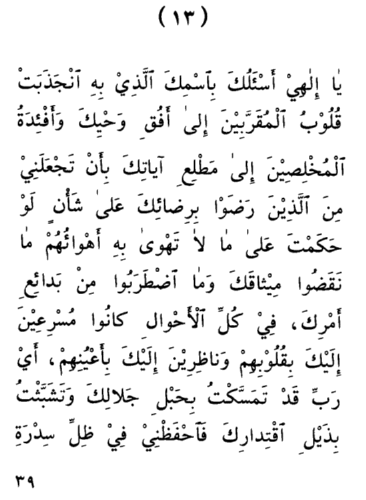 ( ١٣ )
يٰا إِلٰهِيْ أَسْئَلُكَ بِٱسْمِكَ ٱلَّذِيْ بِهِ ٱنْجَذَبَتْ
قُلُوْبُ ٱلْمُقَرَّبِيْنَ إِلىٰ أُفُقِ وَحْيِكَ وَأَفْئِدَةُ
ٱلْمُخْلِصِيْنَ إِلىٰ مَطْلِعِ آياتِكَ بِأَنْ تَجْعَلَنِيْ
مِنَ ٱلَّذِيْنَ رَضَوْا بِرِضائِكَ عَلىٰ شَأْنٍ لَوْ
حَكَمْتَ عَلىٰ مٰا لاٰ تَهْوىٰ بِهِ أَهْوائُهُمْ مٰا
نَقَضُوا مِيْثاقَكَ وَمٰا ٱضْطَرَبُوا مِنْ بَدائِعِ
أَمْرِكَ، فِيْ كُلِّ ٱلْأَحْوالِ كانُوا مُسْرِعِيْنَ
إِلَيْكَ بِقُلُوْبِهِمْ وَناظِرِيْنَ إِلَيْكَ بِأَعْيُنِهِمْ، أَيْ
رَبِّ قَدْ تَمَسَّكْتُ بِحَبْلِ جَلالِكَ وَتَشَبَّثْتُ
بِذَيْلِ ٱقْتِدارِكَ فَٱحْفَظْنِيْ فِيْ ظِلِّ سِدْرَةِ
٣٩